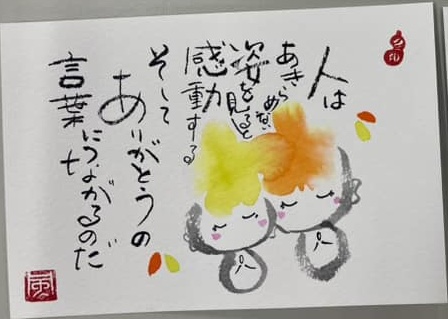 人は
あきらめない
姿を見ると
感動する
そして
ありがとうの
言葉
につながるのだ